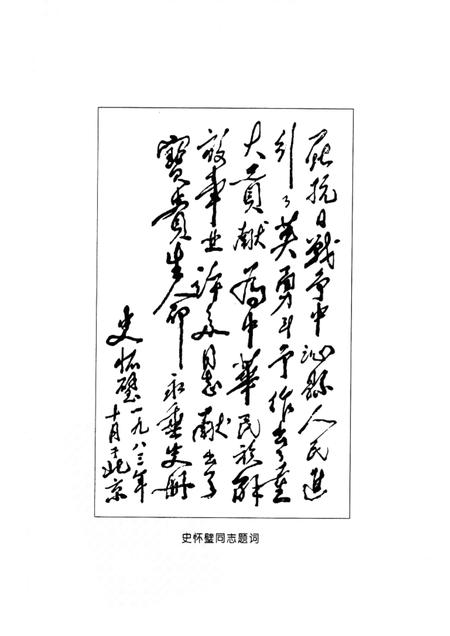 在抗日战争中沁县人民进
行了英勇斗争作出了重
大贡献 为中华民族解
放事业许多同志献出了
寶贵生命 永垂史册
史怀璧 一九八三年
十月于北京
史怀璧同志题词